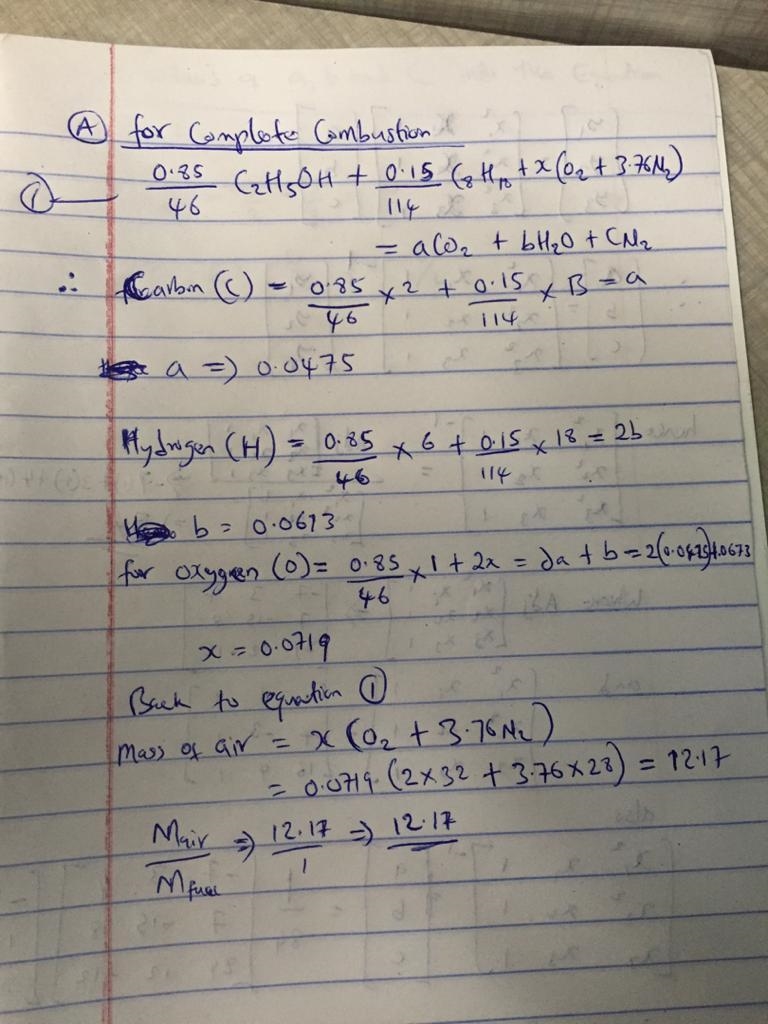 Ⓐ for Complete Combustion
① 0.85/46 C₂H₅OH + 0.15/114 C₈H₁₈ + x(O₂ + 3.76N₂)
= aCO₂ + bH₂O + CN₂
∴ Carbon (C) = 0.85/46 × 2 + 0.15/114 × 8 = a
a => 0.0475
Hydrogen (H) = 0.85/46 × 6 + 0.15/114 × 18 = 2b
b = 0.0673
for oxygen (O) = 0.85/46 × 1 + 2x = 2a + b = 2(0.0475)+0.0673
x = 0.0719
Back to equation ①
Mass of air = x(O₂ + 3.76N₂)
= 0.0719 (2×32 + 3.76×28) = 12.17
Mair/Mfuel => 12.17/1 => 12.17